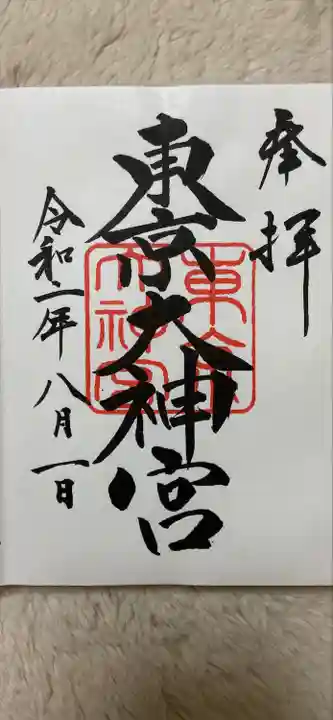 奉拝
東京大神宮
東京大神宮
令和二年八月一日